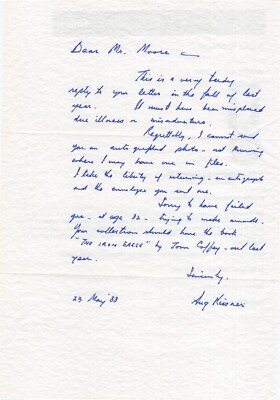 Dear Mr. Moore —
This is a very tardy
reply to your letter in the fall of last
year. It must have been misplaced
due illness or misadventure.
Regrettably, I cannot send
you an autographed photo - not knowing
where I may have one in files.
I take the liberty of returning - an autograph
and the envelope you sent me.
Sorry to have failed
you - at age 82 - trying to make amends.
Your collection should have the book
"THE IRON EAGLE" by Tom Coffey - out last
year.
Sincerely,
23 May 88 Aug Kissner